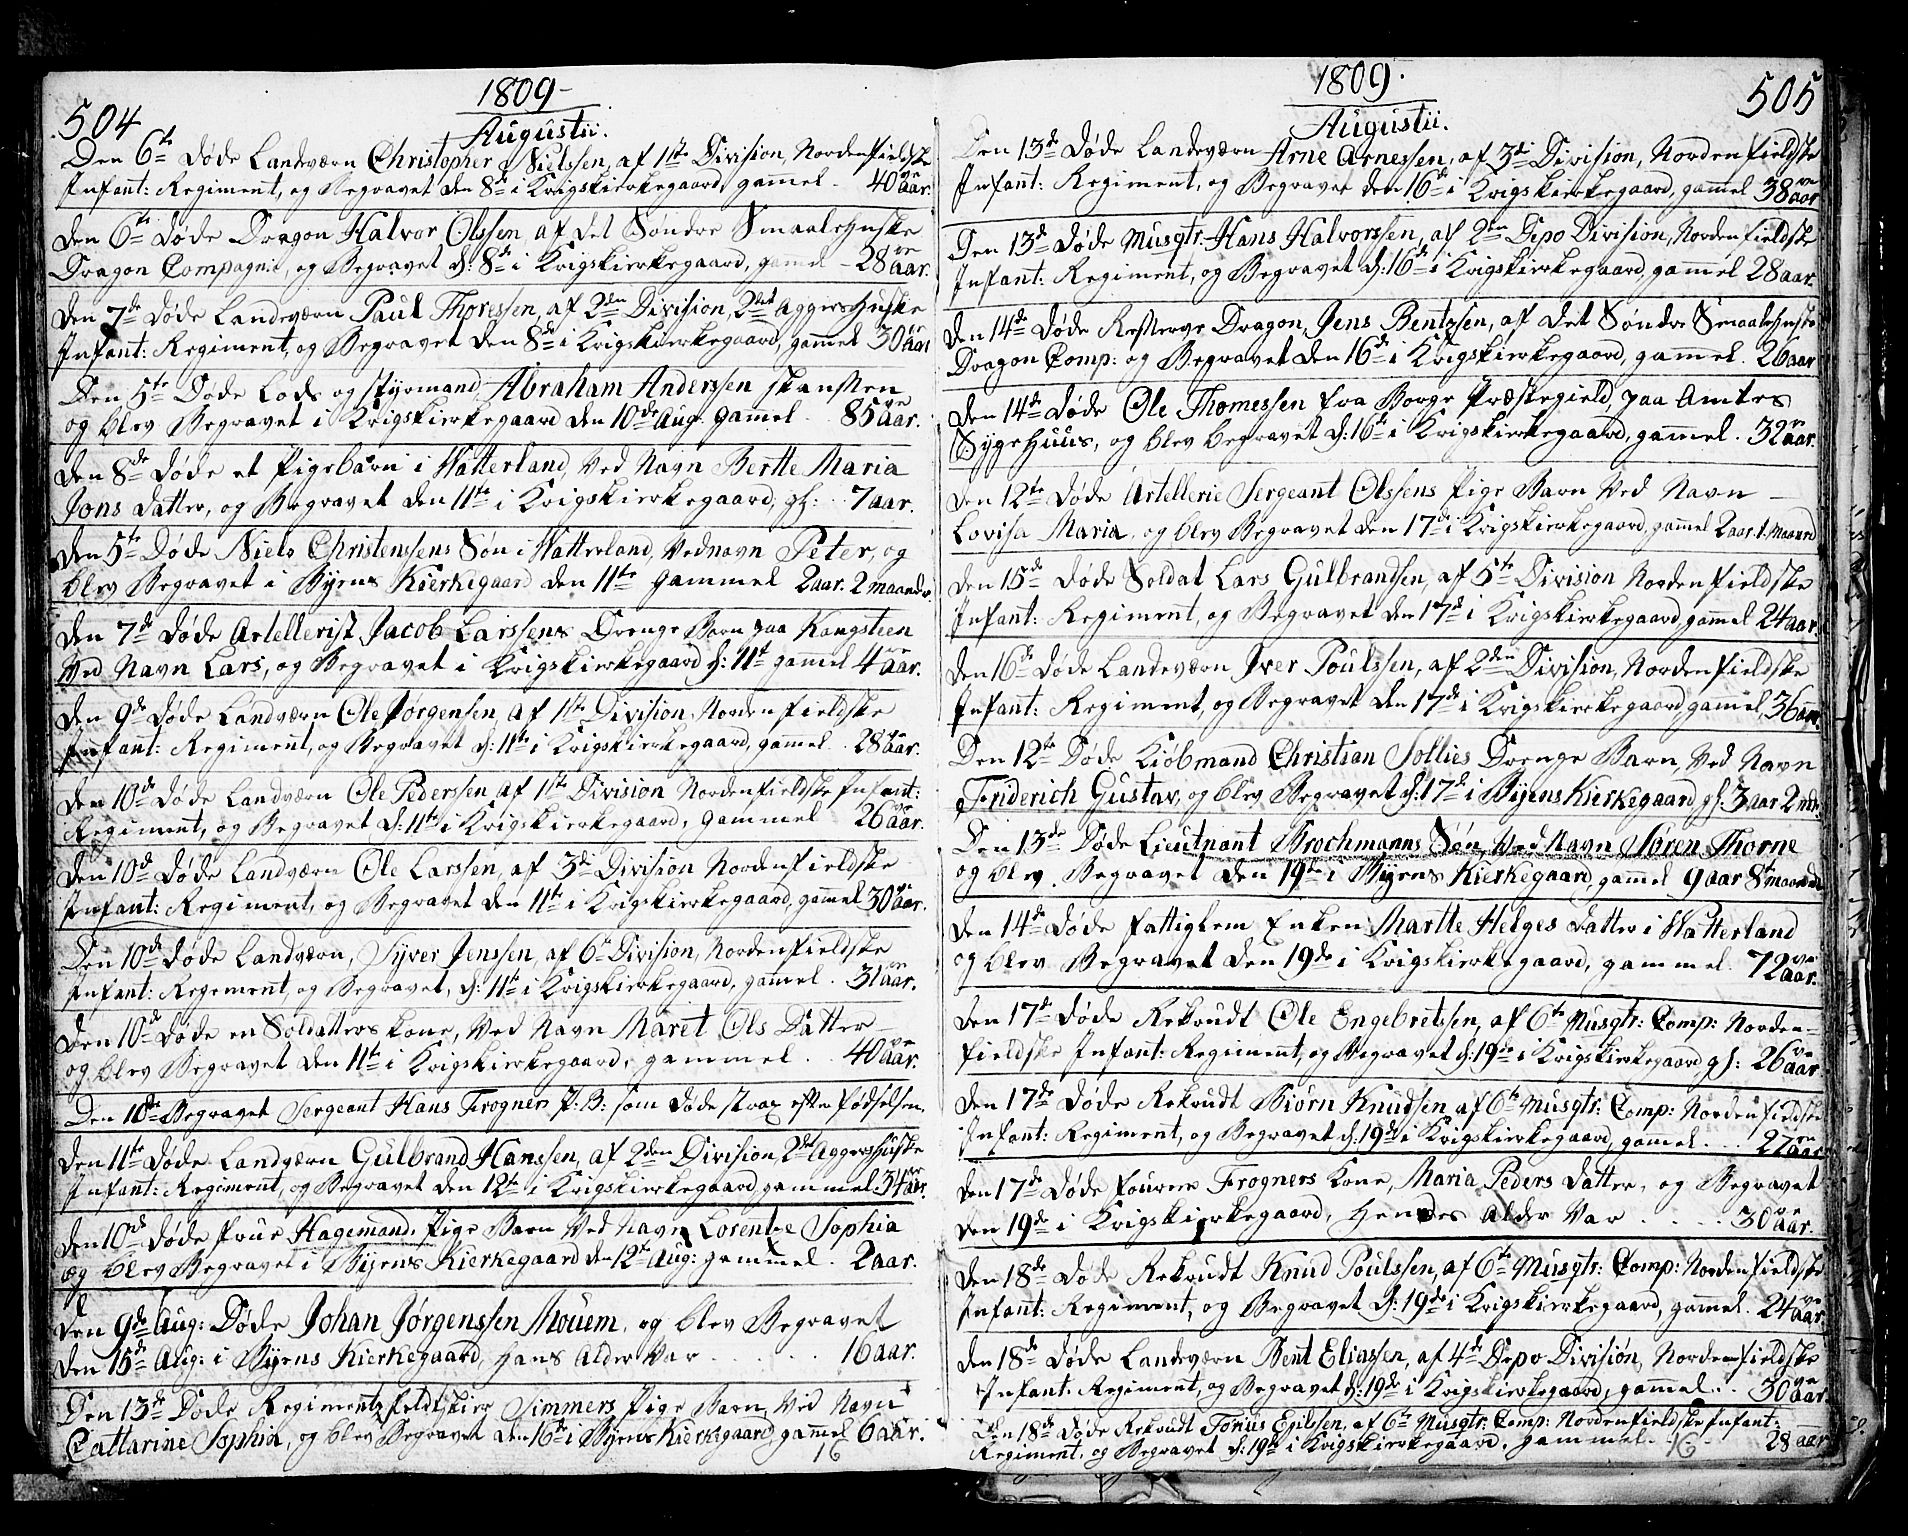 504
1809
Augustii.
Den 6te Døde Landværn Christopher Nielssen, af 1ste Division, Nordenfieldske
Infant: Regiment, og Begravet den 8de i Krigskierkegaard, gammel 40 aar.
Den 6te Døde Dragon Halvor Olssen af det Søndre Smaalehnske
Dragon Compagnie, og Begravet d: 8de i Krigskierkegaard, gamel 28 aar.
Den 7de Døde Landeværn Paul Thoressen, af 2den Division, 2det Aggershuske
Infant: Regiment, og Begravet den 8de i Krigskierkegaard, gammel 30 aar
Den 5te Døde Lods og Styrmand Abraham Anderssen Skansken
og blev Begravet i Krigskierkegaard den 10de Aug. gammel 85 aar.
Den 8de Døde et Pigebarn i Vatterland, Ved Navn Berthe Maria
Jons Datter, og Begravet den 11te i Krigskierkegaard, gl: 7 aar.
Den 5te Døde Niels Christenssens Søn i Vatterland, Vednavn Peter, og
blev Begravet i Byens Kierkegaard den 11te gammel 2 aar. 2 maander.
Den 7de Døde Artellerist Jacob Larssens Drenge Barn paa Kongsteen
Ved Navn Lars, og Begravet i Krigskierkegaard d: 11te gammel 4 aar.
Den 9de Døde Landværn Ole Jørgensen, af 1ste Division, Nordenfieldske
Infant: Regiment, og Begravet d: 11te i Krigskierkegaard, gamel 28 aar.
Den 10de Døde Landværn Ole Pederssen af 1ste Division Nordenfieldske Infant:
Regiment, og Begravet d: 11te i Krigskierkegaard, gammel 26 aar.
Den 10de Døde Landværn Ole Larssen, af 3de Division Nordenfieldske
Infant: Regiment, og Begravet den 11te i Krigskierkegaard, gammel 30 aar.
Den 10de Døde Landværn, Syver Jenssen, af 6te Division, Nordenfieldske
Infant: Regement, og Begravet, d: 11te i Krigskierkegaard, gammel 31 aar.
Den 10de Døde en Soldatters kone, Ved Navn Maret Ols Datter
og blev Begravet den 11te i Krigskierkegaard, gammel 40 aar.
Den 10de Begravet Sergeant Hans Frogners P: B: som døde strax efter fødselsen.
Den 11te Døde Landværn Gulbrand Hanssen, af 2den Division 2det Aggershuske
Infant: Regiment, og Begravet den 12te i Krigskierkegaard gammel 34 aar.
Den 10de Døde frue Hagemans Pige Barn Ved Navn Lorentze Sophia
og blev Begravet i Byens Kierkegaard den 12te Aug: gammel 2 aar.
Den 9de Aug: Døde Johan Jørgenssen Mouem, og blev Begravet
Den 15de Aug: i Byens Kierkegaard, hans Alder Var 16 aar.
Den 13de Døde Regimentzfeldskier Simmers Pige Barn, Ved Navn
Cattarine Sophia, og blev Begravet den 16de i Byens Kierkegaard gammel 6 aar.
16
1809.
505
Augustii.
Den 13de Døde Landeværn Arne Arnessen, af 3de Division, Nordenfieldske
Infant: Regiment, og Begravet den 16de i Krigskierkegaard, gammel 38 aar
Den 13de Døde Musqtr. Hans Halvorssen, af 2den Depo Division, Nordenfieldske
Infant: Regiment, og Begravet d: 16de i Krigskierkegaard, gammel 28 aar.
Den 14de Døde Reserve Dragon, Jens Bentzen, af det Søndre Smaalehnske
Dragon Comp: og Begravet den 16de i Krigskierkegaard, gammel. 26 aar
Den 14de Døde Ole Thomessen fra Borge Præstegield, paa Amtes
Syge Huus, og blev begravet d: 16de i Krigskierkegaard, gammel. 32 aar.
Den 12te Døde Artellerie Sergeant Olssens Pige Barn Ved Navn
Lovisa Maria, og blev Begravet den 17de i Krigskierkegaard, gammel 2 aar. 1. Maaned
Den 15de Døde Soldat Lars Gulbrandsen, af 5te Division Nordenfieldske
Infant: Regiment, og Begravet den 17de i Krigskierkegaard, gammel 24 aar.
Den 16de Døde Landeværn Iver Poulssen, af 2den Division, Nordenfieldske
Infant: Regiment, og Begravet den 17de i Krigskierkegaard, gamel, 36 aar.
Den 12te Døde Kiøbmand Christian Sollies Drenge Barn, Ved Navn
Friderich Gustav, og blev Begravet d: 17de i Byens Kierkegaard, gl: 3 aar 2 mdr.
Den 13de Døde Lieutnant Brochmanns Søn, Ved Navn Søren Thorne
og blev Begravet den 19de i Byens Kierkegaard, gammel 9 aar 8te maaneder
Den 14de Døde fattiglem Enken Marthe Helges Datter i Vatterland
og blev Begravet den 19de i Krigskierkegaard, gammel 72 aar.
Den 17de Døde Rekrudt Ole Engebretssen, af 6te Musqtr: Comp: Norden-
fieldske Infant: Regiment, og Begravet d: 19de i Krigskierkegaard, gl: 26 aar.
Den 17de Døde Rekrudt Biørn Knudsen af 6te Musqtr: Comp: Nordenfieldske
Infant: Regiment, og Begravet d: 19de i Krigskierkegaard, gamel 27 aar
Den 17de Døde fourer Frogners Kone, Maria Peders Datter, og Begravet
den 19de i Krigskierkegaard, Hendes Alder Var 30 aar.
Den 18de Døde Rekrudt Knud Poulssen, af 6te Musqtr: Comp: Nordenfieldske
Infant: Regiment, og Begravet d: 19de i Krigskierkegaard, gammel. 24 aar.
Den 18de Døde Landeværn Bent Eliassen, af 4de Depo Division, Nordenfieldske
Infant: Regiment, og Begravet d: 19de i Krigskierkegaard, gammel 30 aar
Den 18de Døde Rekrudt Tonius Egilssen, af 6te Musqtr: Comp: Nordenfieldske Infant:
Regiment, og Begravet d: 19de i Krigskierkegaard, gammel 28 aar
16